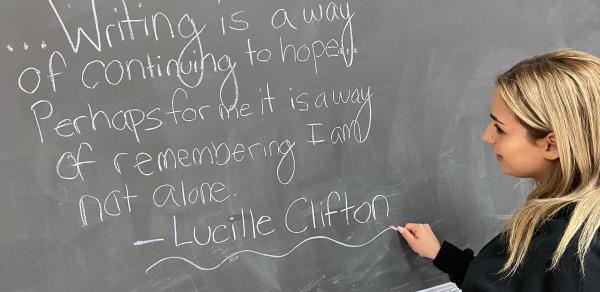 ... Writing is a way
of continuing to hope.
Perhaps for me it is a way
of remembering I am
not alone.
- Lucille Clifton